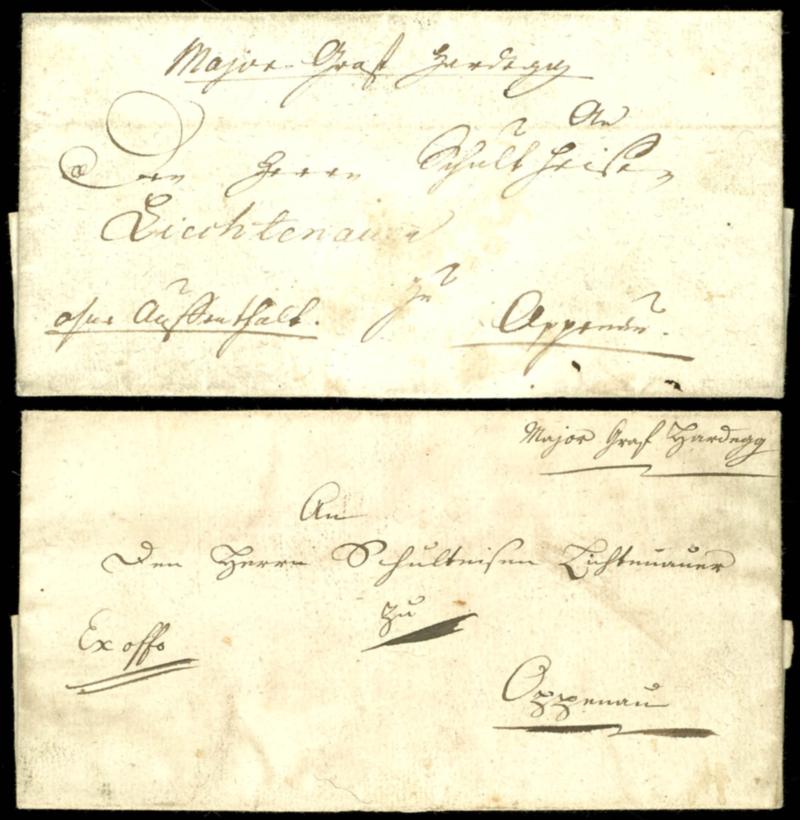 Major Graf Hardegg
An
Den Herrn Schultheisen
Liechtenauer
ohne Auffenthalt.
zu
Oppenau.
Major Graf Hardegg
An
Den Herrn Schulteisen Lichtenauer
zu
Ex offo
Oppenau